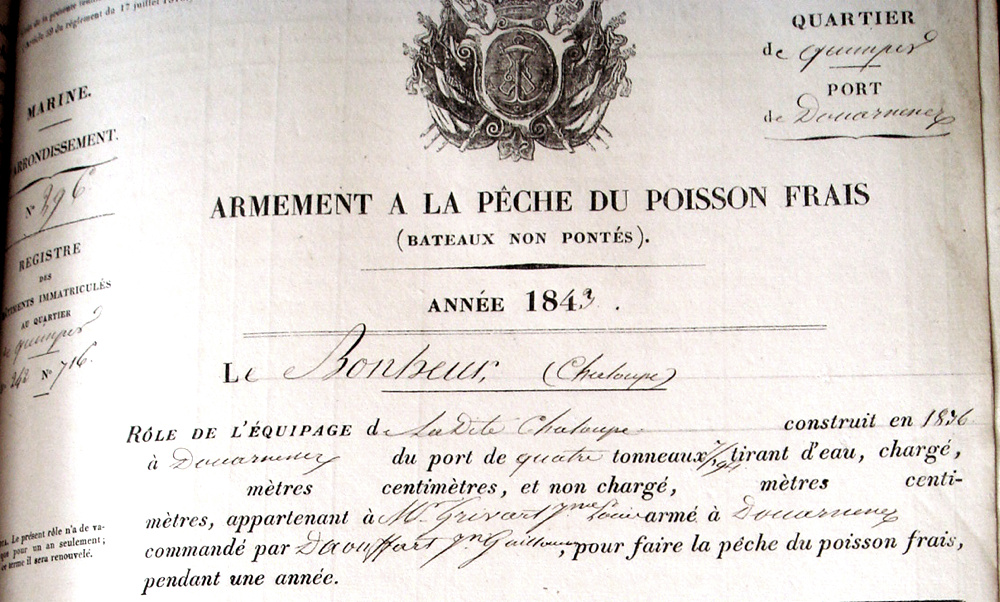 (Article 59 du règlement du 17 juillet
MARINE.
ARRONDISSEMENT.
N° 296
REGISTRE
DES
BÂTIMENTS IMMATRICULÉS
AU QUARTIER
de quimper
242 N° 716.
QUARTIER
de quimper
PORT
de Douarnenez
ARMEMENT A LA PÊCHE DU POISSON FRAIS
(BATEAUX NON PONTÉS).
ANNÉE 1843.
Le Bonheur, (Chaloupe)
RÔLE DE L'ÉQUIPAGE de La Dite Chaloupe construit en 1836
à Douarnenez du port de quatre tonneaux tirant d'eau, chargé,
mètres centimètres, et non chargé, mètres centi-
mètres, appartenant à Mr. Grivart armé à Douarnenez
commandé par , pour faire la pêche du poisson frais,
pendant une année.
Le présent rôle n'a de va-
pour un an seulement;
terme il sera renouvelé.